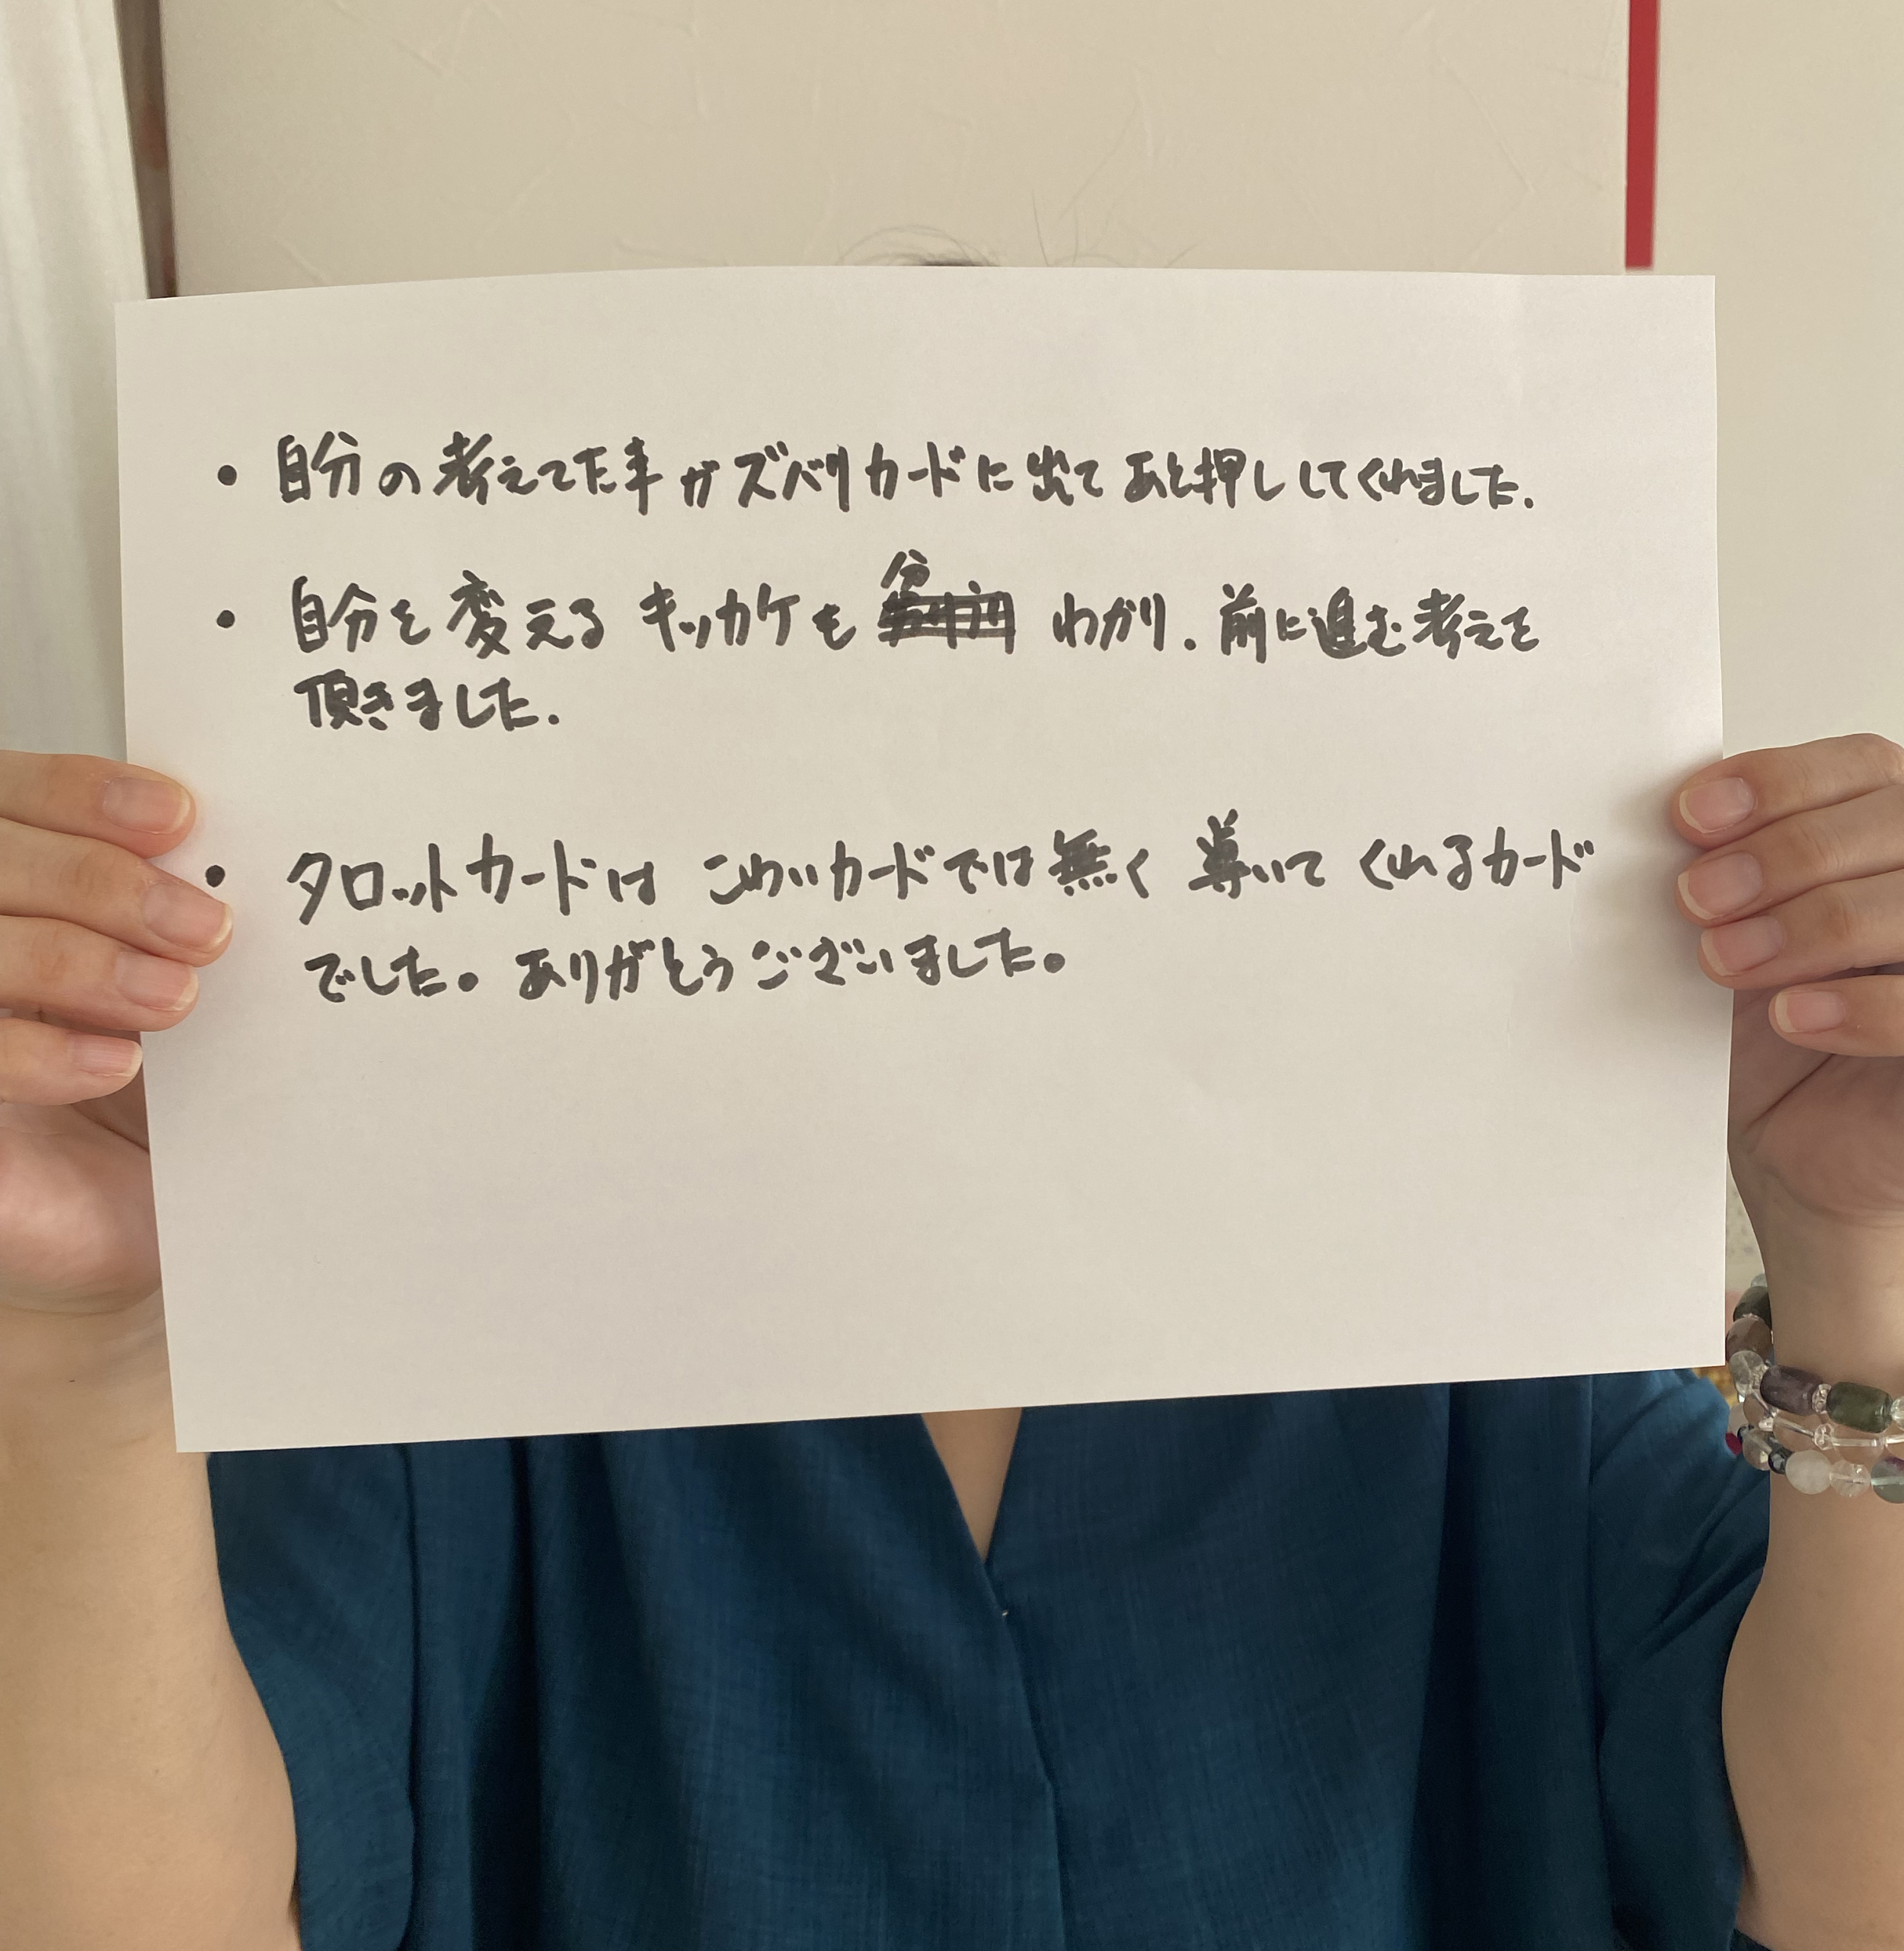 ・自分の考えてた事がズバリカードに出てあと押ししてくれました.
・自分を変えるキッカケも わかり.前に進む考えを
頂きました.
・タロットカードはこわいカードでは無く導いてくれるカード
でした。ありがとうございました。